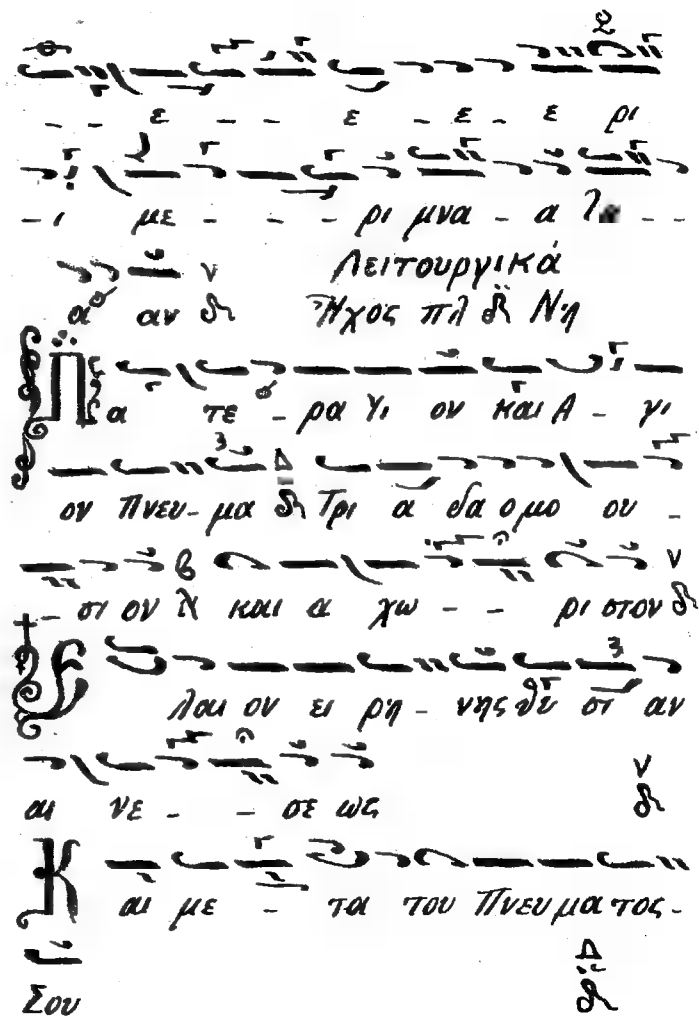 - - ε - - ε - ε - ε ρι
- ι με - - - ρι μνα - α - -
α αν Λειτουργικά
Ἦχος πλ δ̈ Νη
Πα τε - ρα Υι ον και Α - γι
ον Πνευ - μα Τρι α δα ομο ου -
- σι ον και α χω - - ρι στον
Ε λαι ον ει ρη - νης θυ σι αν
αι νε - - σε ως
Κ αι με - τα του Πνευ μα τος -
Σου